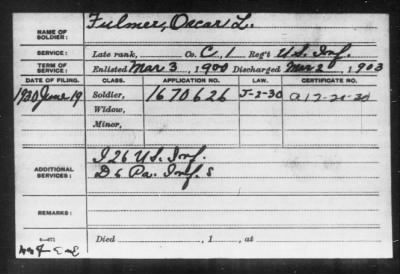 NAME OF SOLDIER: Fulmer, Oscar L.
SERVICE: Late rank, Co. C, 1 Reg't U.S. Inf.
TERM OF SERVICE: Enlisted Mar 3, 1900 Discharged Mar 2, 1903
DATE OF FILING. CLASS. APPLICATION NO. LAW. CERTIFICATE NO.
1930 June 19 Soldier, 1670626 J-2-30
Widow,
Minor,
ADDITIONAL SERVICES: I 26 U.S. Inf.
D 6 Pa. Inf. S
REMARKS:
Died , 1 , at